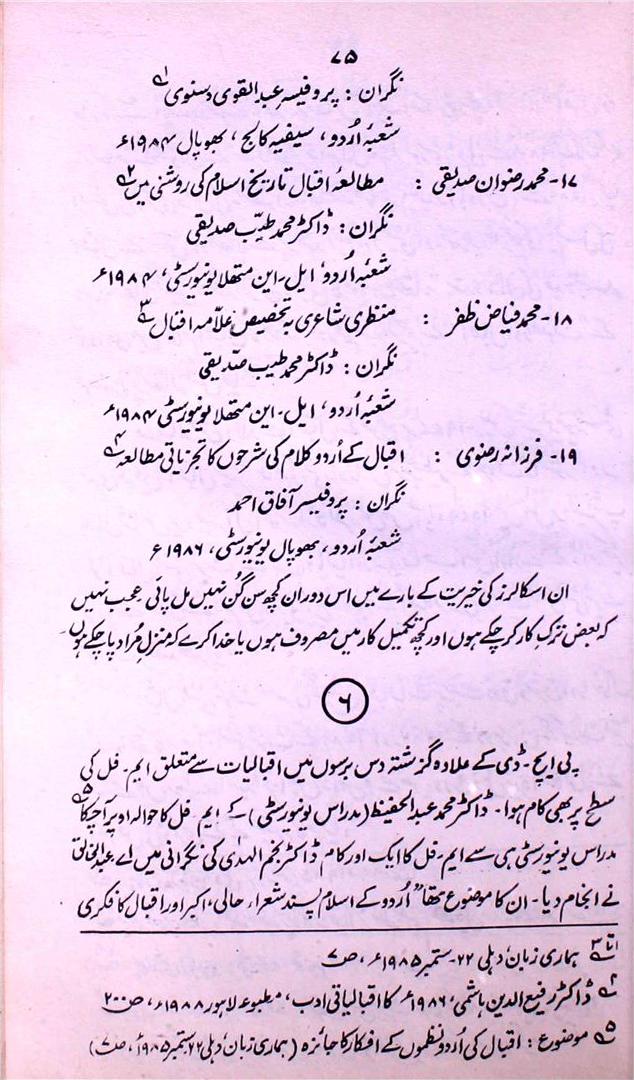 ۷۵
نگراں : پروفیسر عبدالقوی دسنوی ؂۱
شعبۂ اُردو ، سیفیہ کالج ، بھوپال ۱۹۸۴ء
۱۷- محمد رضوان صدیقی : مطالعۂ اقبال تاریخ اسلام کی روشنی میں ؂۲
نگراں : ڈاکٹر محمد طیّب صدیقی
شعبۂ اُردو ، ایل - این متھلا یونیورسٹی ، ۱۹۸۴ء
۱۸- محمد فیاض ظفر : منظری شاعری بہ تخصیص علّامہ اقبال ؂۳
نگراں : ڈاکٹر محمد طیب صدّیقی
شعبۂ اُردو ، ایل - این متھلا یونیورسٹی ۱۹۸۴ء
۱۹- فرزانہ رضوی : اقبال کے اُردو کلام کی شرحوں کا تجزیاتی مطالعہ ؂۴
نگراں : پروفیسر آفاق احمد
شعبۂ اُردو ، بھوپال یونیورسٹی ، ۱۹۸۶ء
ان اسکالرز کی خیریت کے بارے میں اس دوران کچھ سن گُن نہیں مل پائی عجب نہیں
کہ بعض ترکِ کار کر چکے ہوں اور کچھ تکمیل کار میں مصروف ہوں یا خدا کرے کہ منزلِ مُراد پا چکے ہوں۔
۶
پی ایچ - ڈی کے علاوہ گزشتہ دس برسوں میں اقبالیات سے متعلق ایم - فل کی
سطح پر بھی کام ہوا - ڈاکٹر محمد عبدالحفیظ (مدراس یونیورسٹی) کے ایم - فل کا حوالہ اوپر آچکا ؂۵
مدراس یونیورسٹی ہی سے ایم - فل کا ایک اور کام ڈاکٹر نجم الہدٰی کی نگرانی میں اے عبدالخالق
نے انجام دیا - ان کا موضوع تھا "اُردو کے اسلام پسند شعراء حالی، اکبر اور اقبال کا فکری
؂۱ تا ۳ ہماری زبان، دہلی ۲۲- ستمبر ۱۹۸۵ء، ص ۷
؂۴ ڈاکٹر رفیع الدین ہاشمی، ۱۹۸۶ء کا اقبالیاتی ادب، مطبوعہ لاہور ۱۹۸۸ء، ص ۲۰۰
؂۵ موضوع : اقبال کی اُردو نظموں کے افکار کا جائزہ (ہماری زبان، دہلی ۲۲ ستمبر ۱۹۸۵ء، ص ۷)